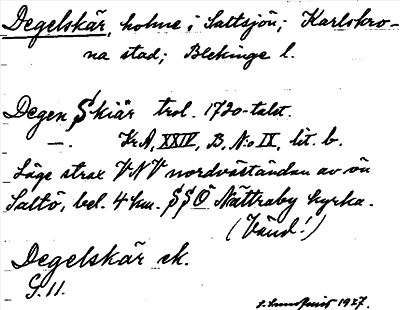 Degelskär, holme i Saltsjön; Karlskro-
na stad; Blekinge l.
Degen Skiär trol. 1720-talet.
—. Kr.A, XXIV, B, No IX, lit. b.
Läge strax VNV nordväständan av ön
Saltö, bel. 4 km. SSÖ Nättraby kyrka.
(Vänd!)
Degelskär ek.
G.11.
S. Lundqvist 1927.